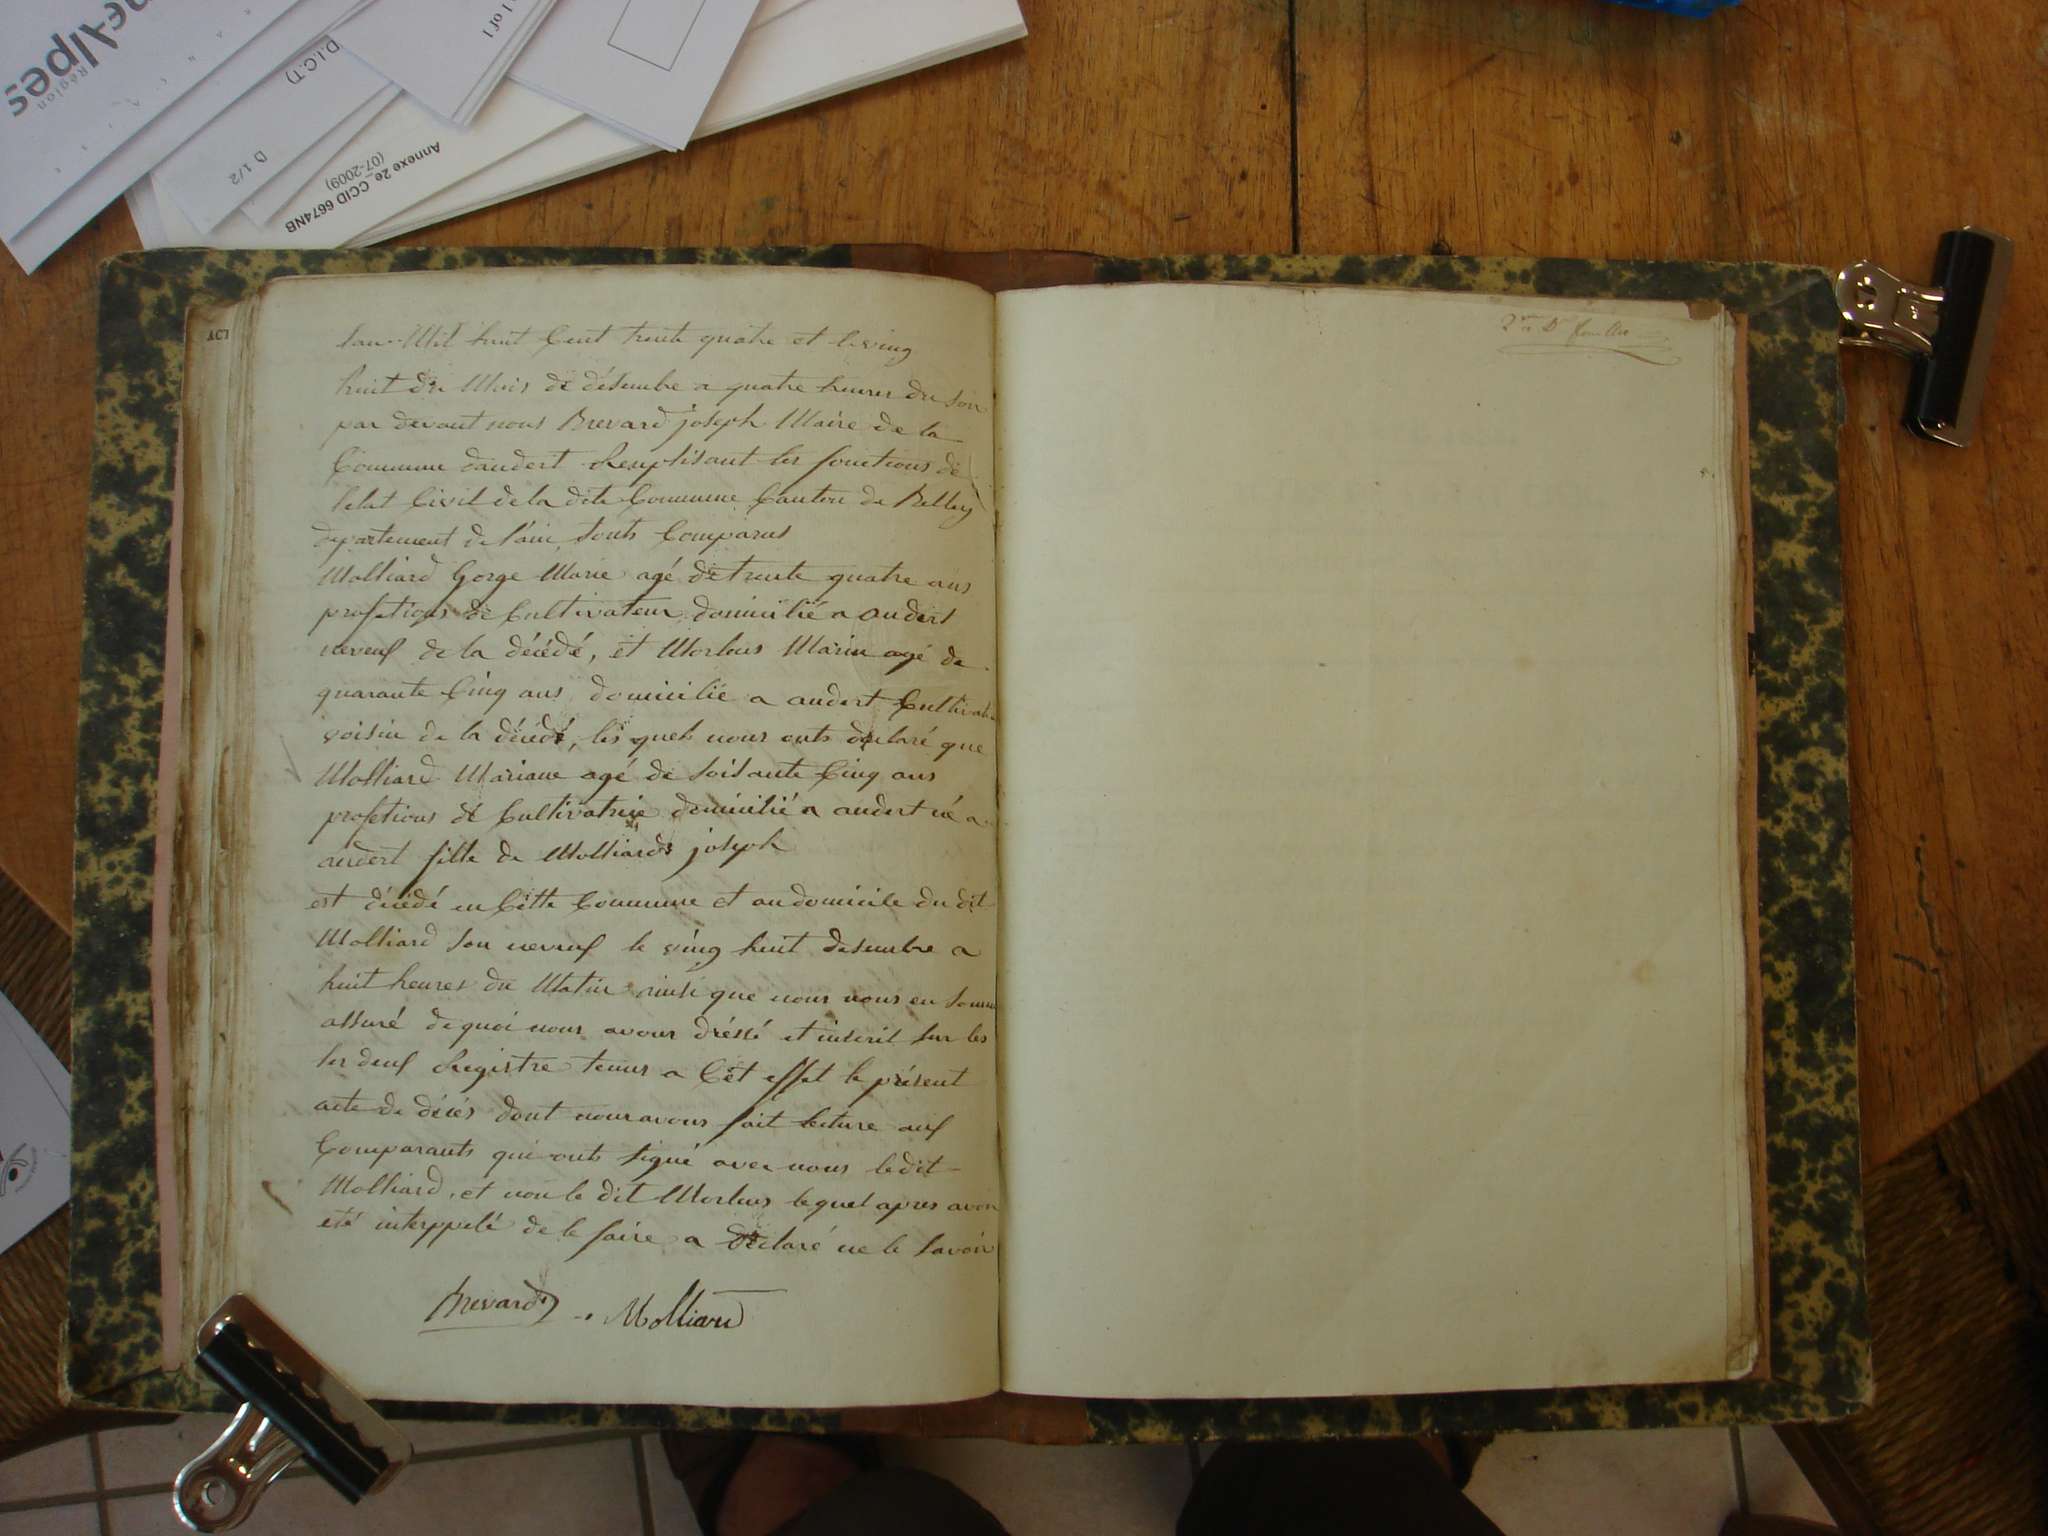 ne-Alpes
Région
D.I.C.T)
1 of 1
D 1/2
Annexe 2e_CCID 6674NB
(07-2009)
ACT
lan Mil huit Cent trente quatre et le ving
huit du Mois de désembre a quatre heures du soir
par devant nous Brevard joseph Maire de la
Commune dandert Remplisant les fonctions de
letat Civil de la dite Commune Canton de Belley
departement de l'ain, sonts Comparus
Molliard Gorge Marie agé de trente quatre ans
profetions de Cultivateur domicilié a andert
neveuf de la décédé, et Marin agé de
quarante Cinq ans, domicilié a andert Cultivat
voisin de la décédé, les quels nous onts déclaré que
Molliard Mariane agé de soisante Cinq ans
profetions de Cultivatrice domicilié a andert né a
andert fille de Molliard joseph
est décédé en Cette Commune et au domicile du dit
Molliard son neveuf le ving huit desembre a
huit heures du Matin ainsi que nous nous en somme
assuré de quoi nous avons dréssé et inscrit sur les
les deuf Registre tenus a Cét effet le présent
acte de décés dont nous avons fait lecture auf
Comparants qui onts signé avec nous le dit
Molliard, et non le dit lequel apres avoir
été interppelé de le faire a déclaré ne le savoir
Brevard Molliard
2